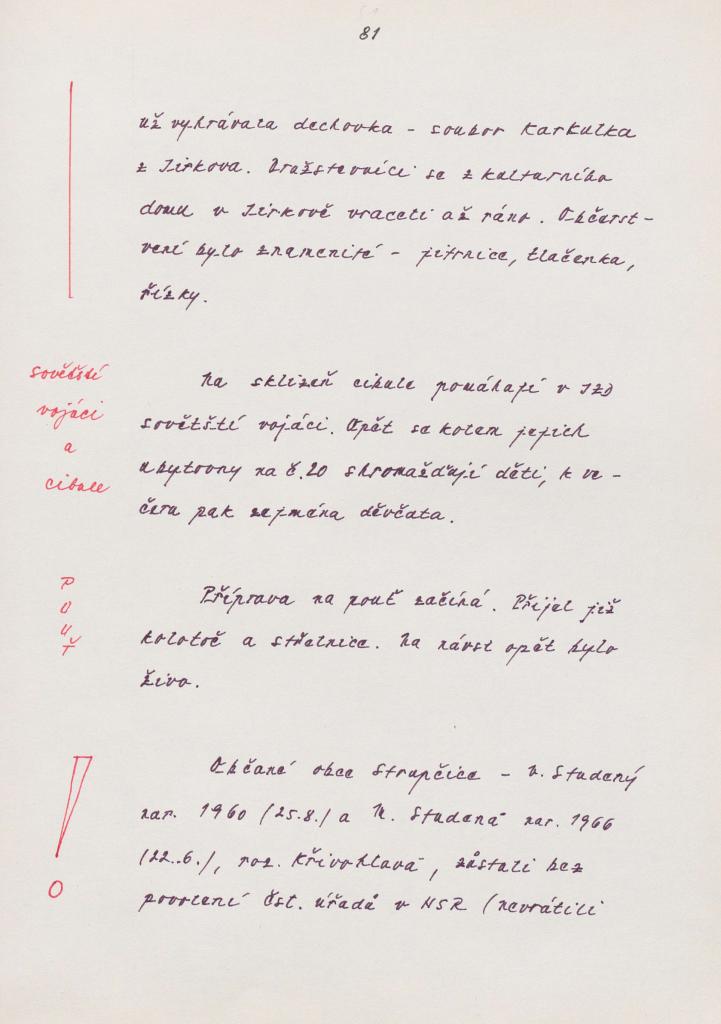 81
už vyhrávala dechovka - soubor Karkulka
z Jirkova. Družstevníci se z kulturního
domu v Jirkově vraceli až ráno. Občerst-
vení bylo znamenité - jitrnice, tlačenka,
řízky.
sovětští
vojáci
a
cibule
Na sklizeň cibule pomáhají v JZD
sovětští vojáci. Opět se kolem jejich
ubytovny na č. 20 shromažďují děti, k ve-
čeru pak zejména děvčata.
POUŤ
Příprava na pouť začíná. Přijel již
kolotoč a střelnice. Na návsi opět bylo
živo.
Občané obce Strupčice - V. Studený
nar. 1960 (25.8.) a M. Studená nar. 1966
(22.6.), roz. Křivohlavá, zůstali bez
povolení čst. úřadů v NSR (nevrátili